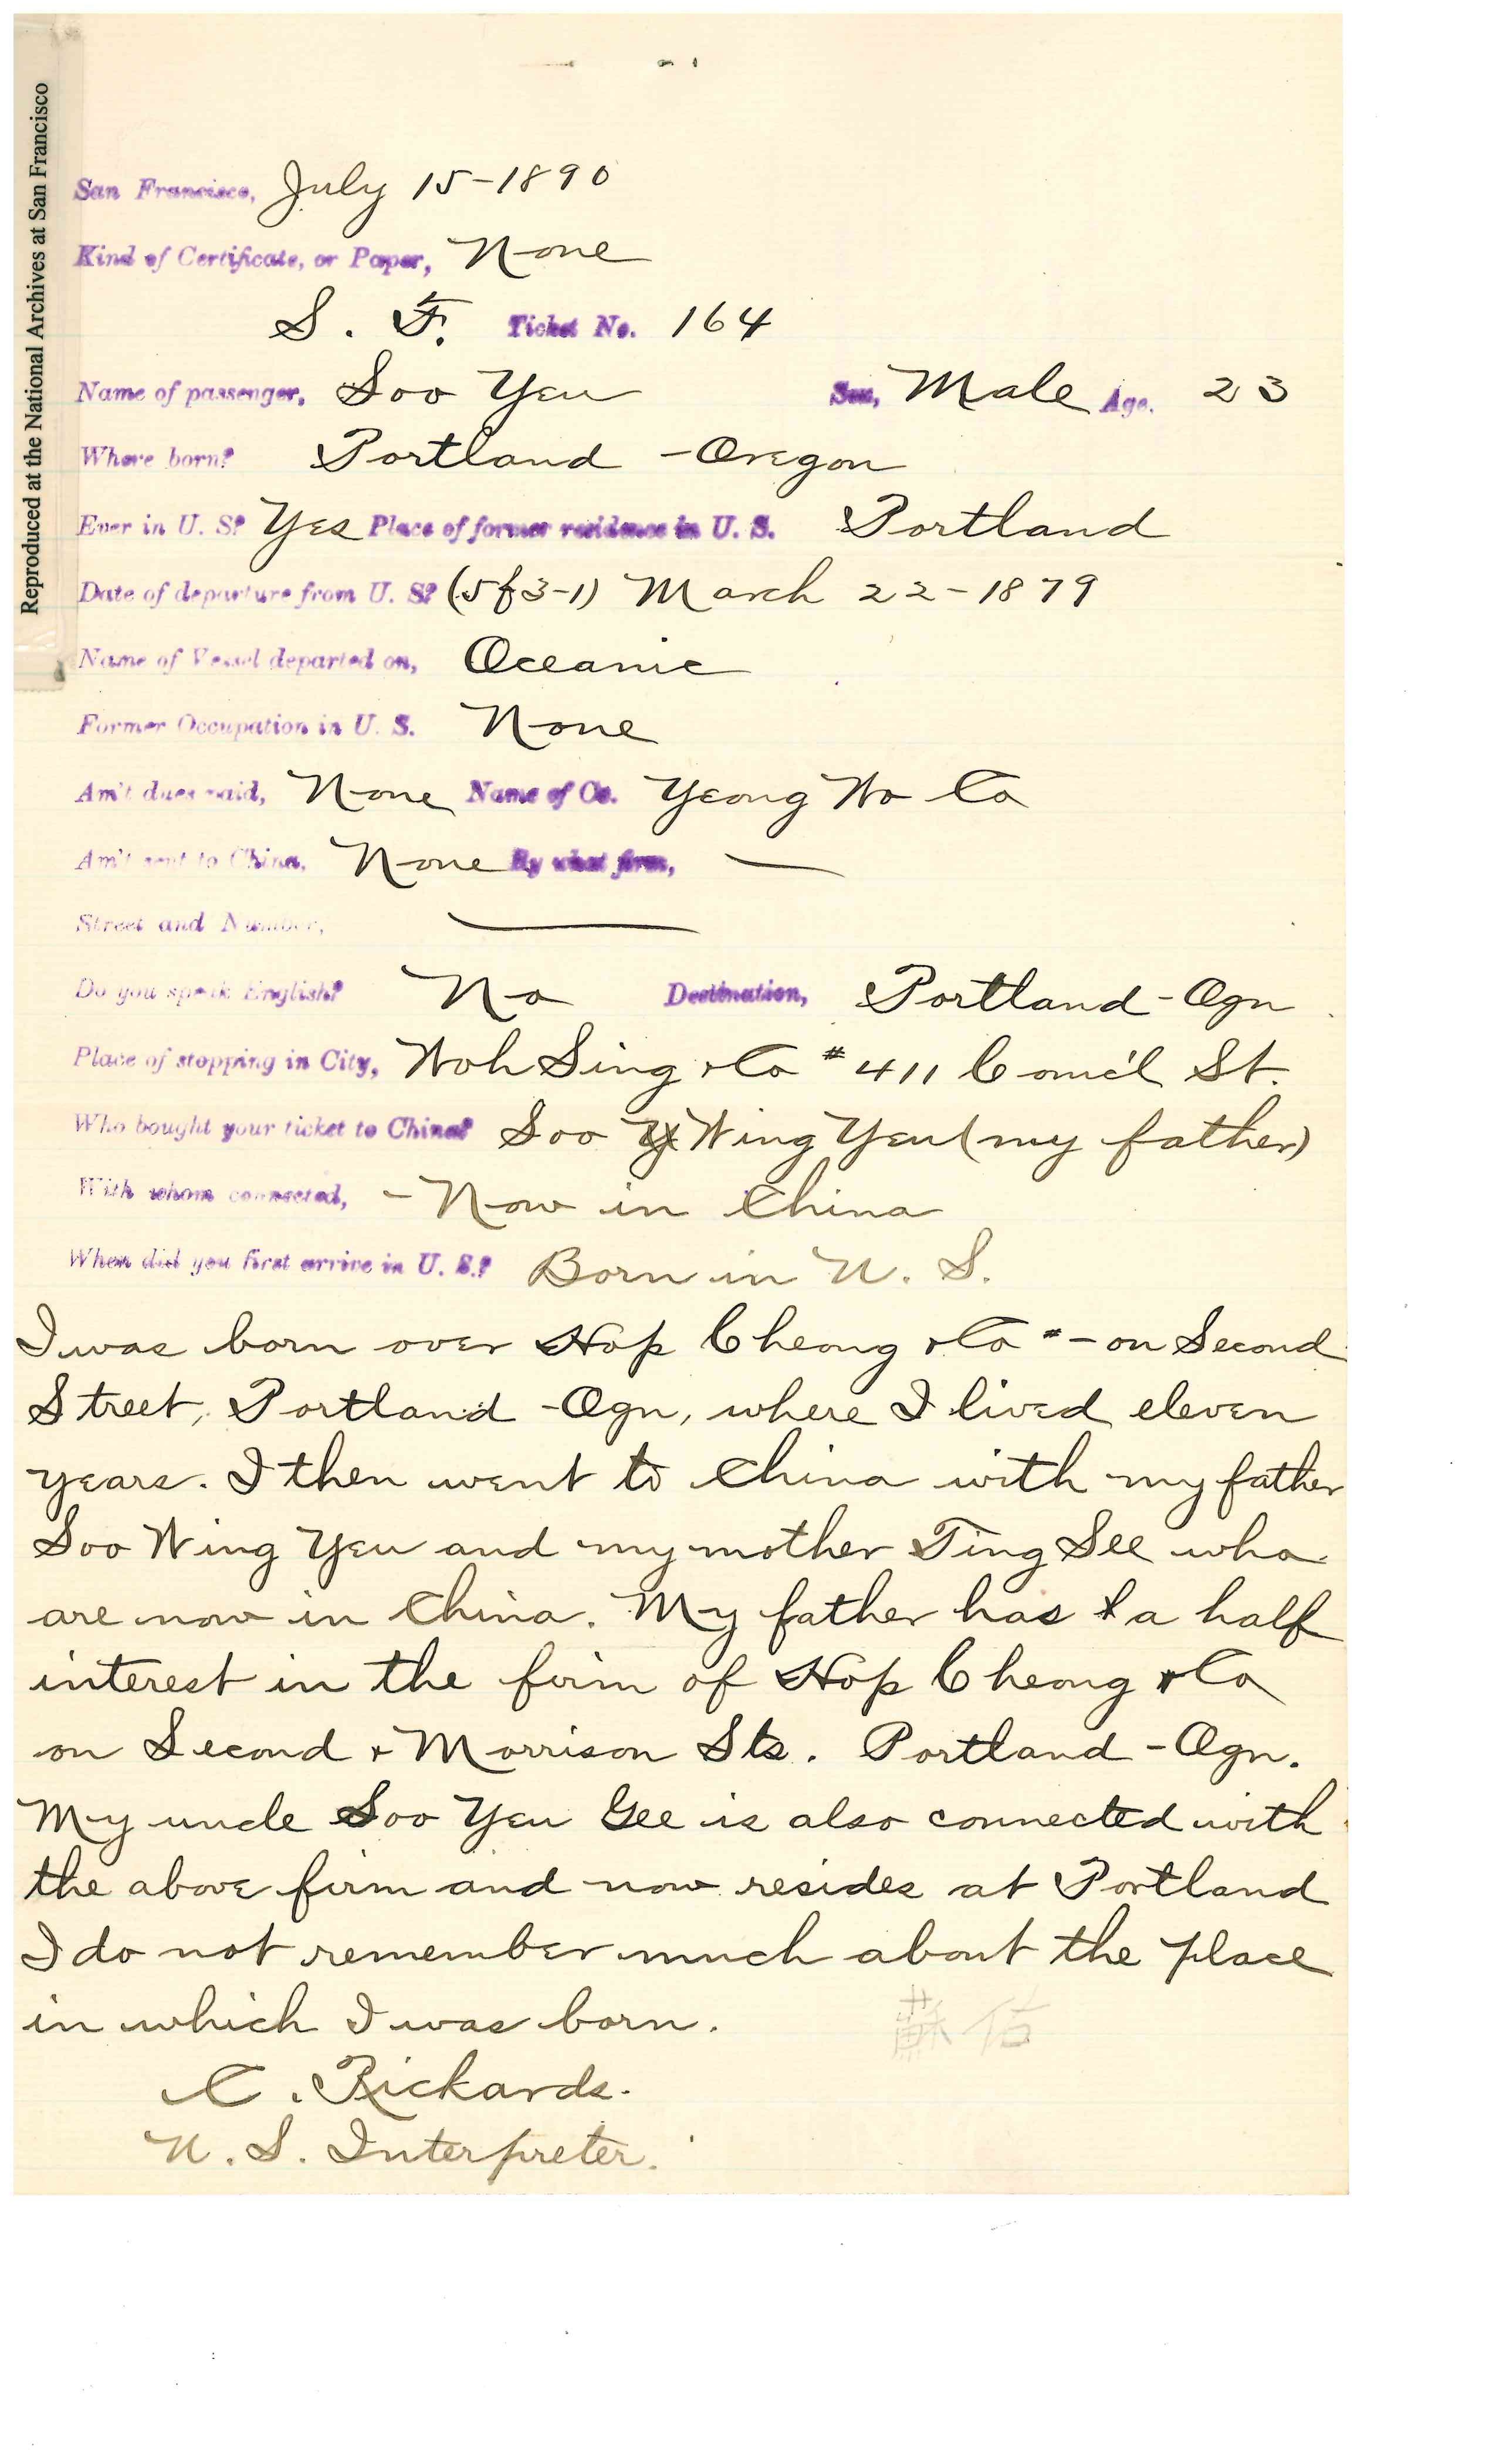 Reproduced at the National Archives at San Francisco
San Francisco, July 15-1890
Kind of Certificate, or Paper, None
S. F. Ticket No. 164
Name of passenger, Soo Yeu Sex, Male Age. 23
Where born? Portland - Oregon
Ever in U. S? Yes Place of former residence in U. S. Portland
Date of departure from U. S? (5f3-1) March 22-1879
Name of Vessel departed on, Oceanic
Former Occupation in U. S. None
Am't dues paid, None Name of Co. Yeong Wo Co
Am't sent to China, None By what firm, —
Street and Number, —
Do you speak English? No Destination, Portland-Ogn
Place of stopping in City, Woh Sing & Co # 411 Com'l St.
Who bought your ticket to China? Soo Wing Yeu (my father)
With whom connected, - Now in China
When did you first arrive in U. S.? Born in U. S.
I was born over Hop Cheong & Co # - on Second
Street, Portland - Ogn, where I lived eleven
years. I then went to China with my father
Soo Wing Yeu and my mother Ting See who
are now in China. My father has a half
interest in the firm of Hop Cheong & Co
on Second & Morrison Sts. Portland - Ogn.
My uncle Soo Yeu Gee is also connected with
the above firm and now resides at Portland
I do not remember much about the place
in which I was born.
蘇佑
C. Rickards.
U. S. Interpreter.